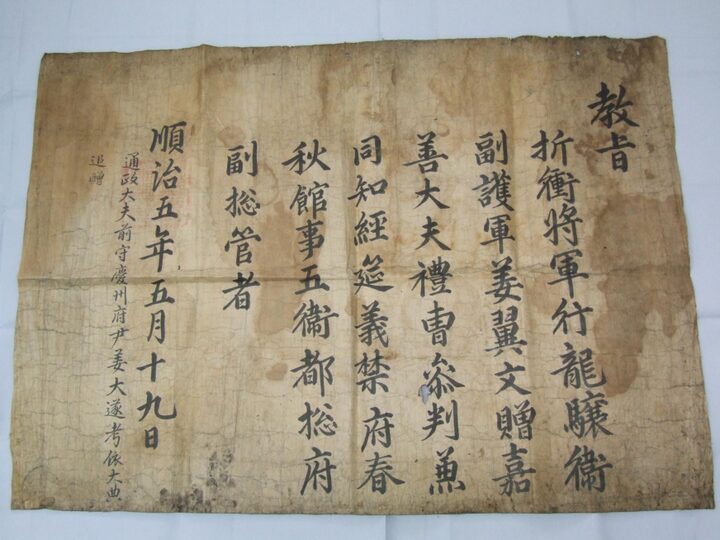 教旨
折衝將軍行龍驤衛
副護軍姜翼文贈嘉
善大夫禮曹叅判兼
同知經筵義禁府春
秋館事五衛都摠府
副摠管者
順治五年五月十九日
通政大夫前守慶州府尹姜大遂考依大典
追贈